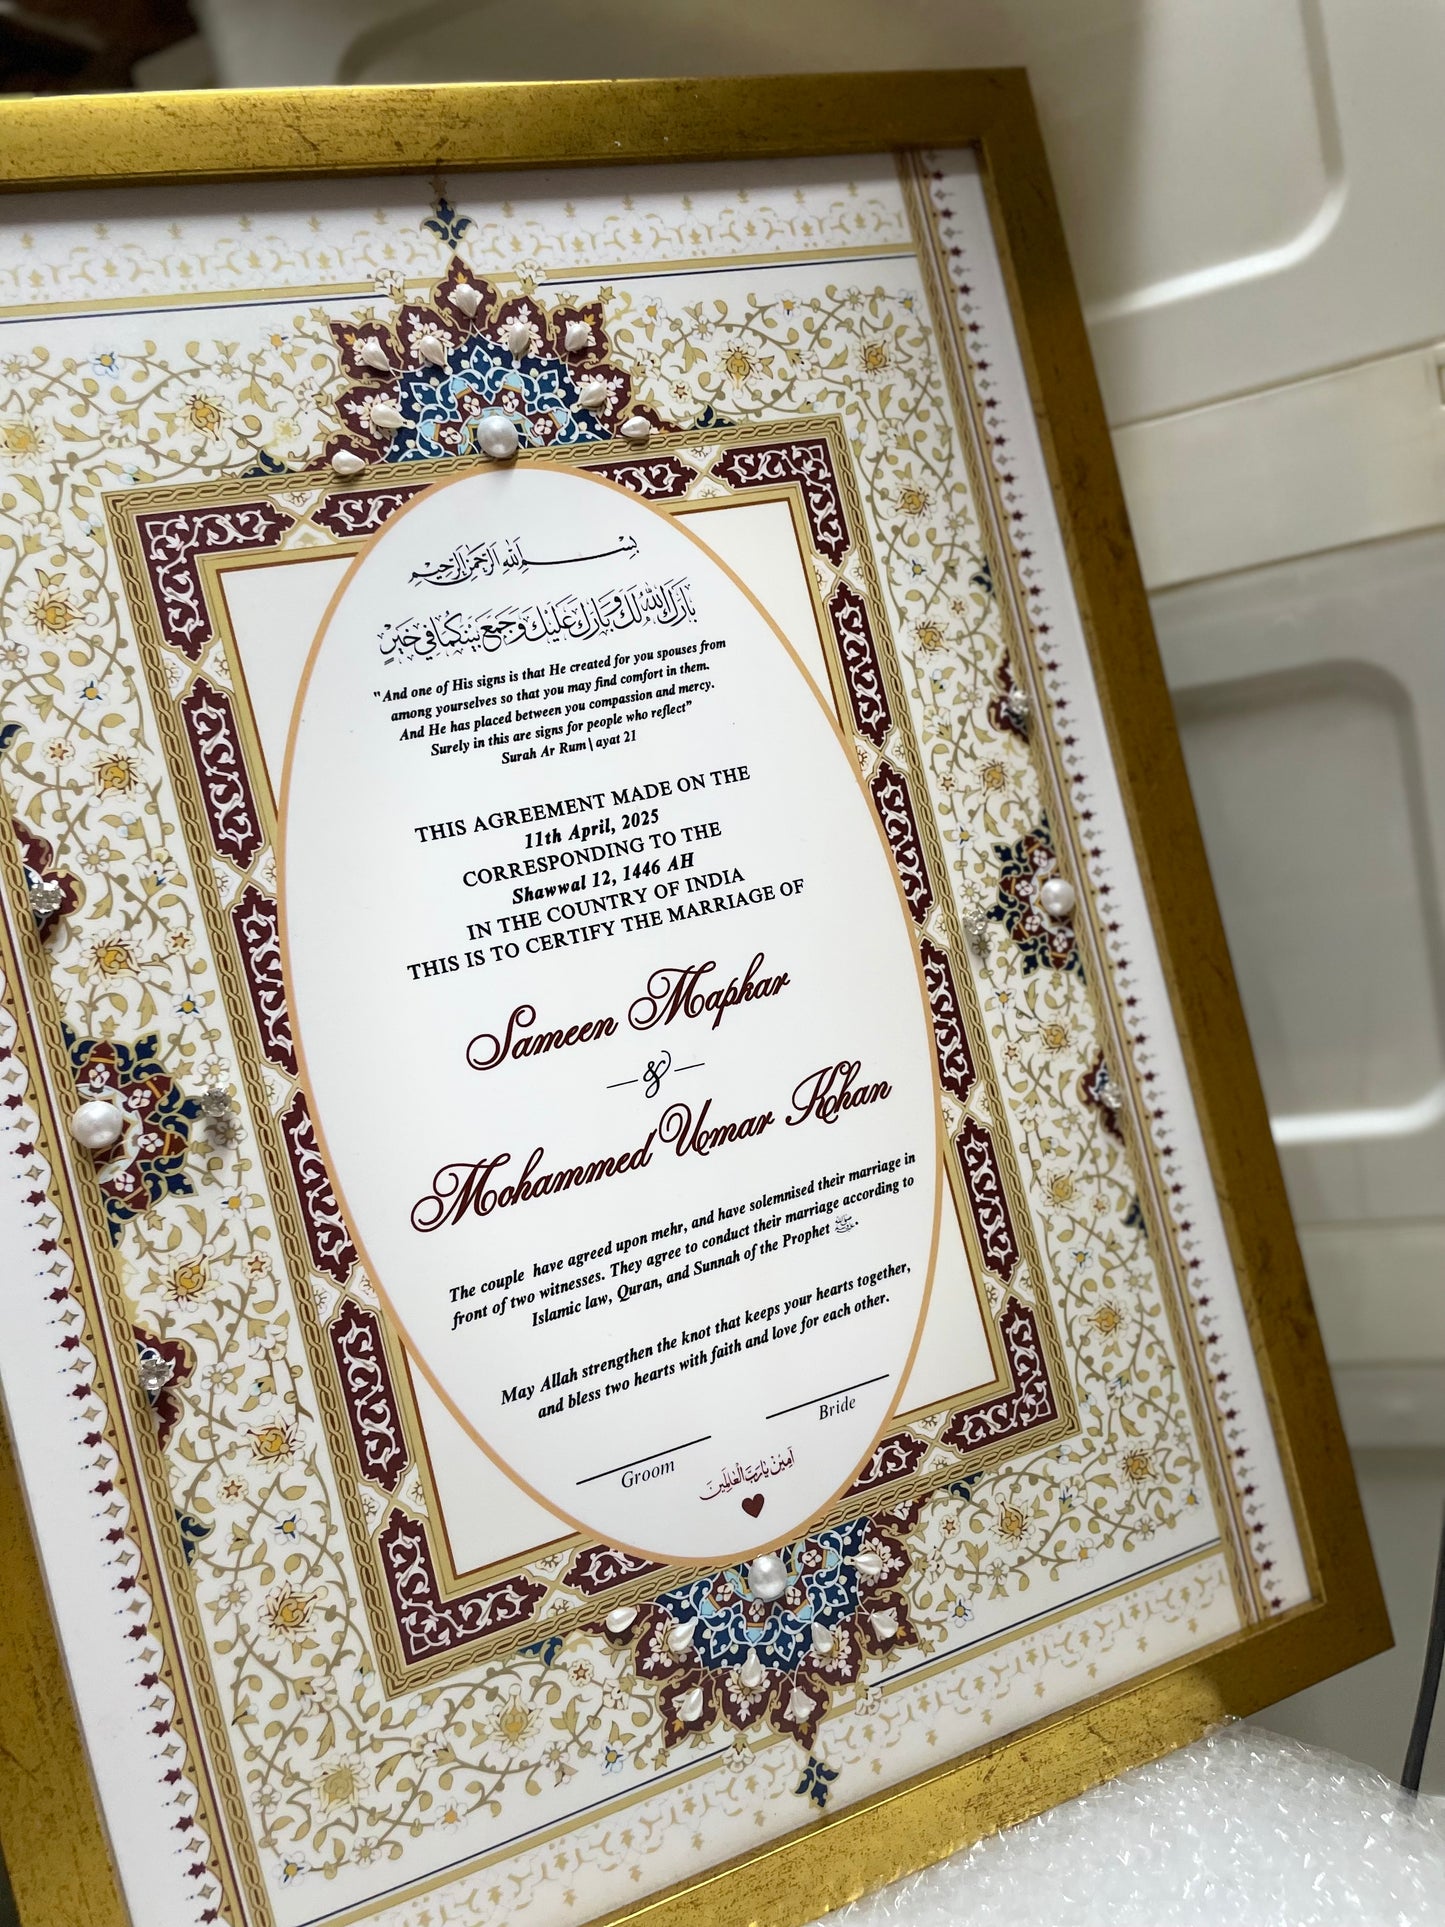 بِسْــــمِ اللهِ الرَّحْمٰنِ الرَّحِيْمِ
بَارَكَ اللهُ لَكَ وَبَارَكَ عَلَيْكَ وَجَمَعَ بَيْنَكُمَا فِي خَيْرٍ
"And one of His signs is that He created for you spouses from
among yourselves so that you may find comfort in them.
And He has placed between you compassion and mercy.
Surely in this are signs for people who reflect"
Surah Ar Rum\ayat 21
THIS AGREEMENT MADE ON THE
11th April, 2025
CORRESPONDING TO THE
Shawwal 12, 1446 AH
IN THE COUNTRY OF INDIA
THIS IS TO CERTIFY THE MARRIAGE OF
Sameen Mapkar
&
Mohammed Umar Khan
The couple have agreed upon mehr, and have solemnised their marriage in
front of two witnesses. They agree to conduct their marriage according to
Islamic law, Quran, and Sunnah of the Prophet ﷺ.
May Allah strengthen the knot that keeps your hearts together,
and bless two hearts with faith and love for each other.
Groom
Bride
آمِيْن يَا رَبَّ الْعَالَمِيْن